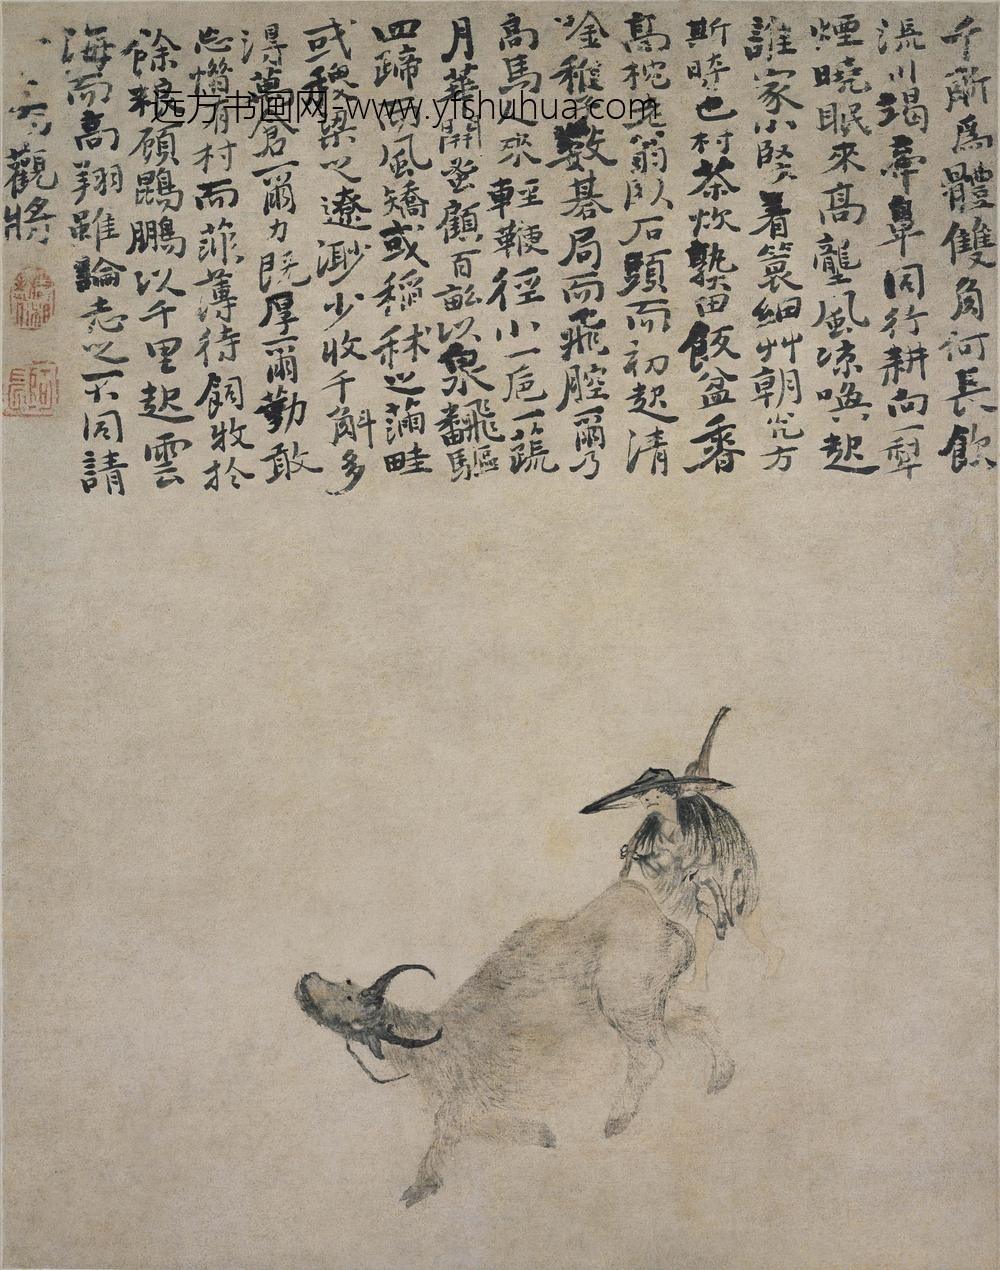 千斫為體雙角何長飲
流川竭牽鼻同行耕向一犁
煙曉眠來高壟風凉喚起
誰家小豎着蓑細艸朝光方
斯時也村茶炊熟田飯盆香
高枕老翁臥石頭而初起清
唫稚子敲碁局而飛腔爾乃
高馬之來輕鞭徑小一卮一蔬
月華開登顧百畝以泉飜驅
四蹄而風矯或稻秫之蒲畦
或穄梁之遼渺少收千斛多
得萬倉爾力既厚爾勤敢
忘惱有村而菲薄待飼牧於
餘糧顧鵾鵬以千里起雲
海而高翔雖論志之不同請
觀將
远方书画网-www.yfshuhua.com